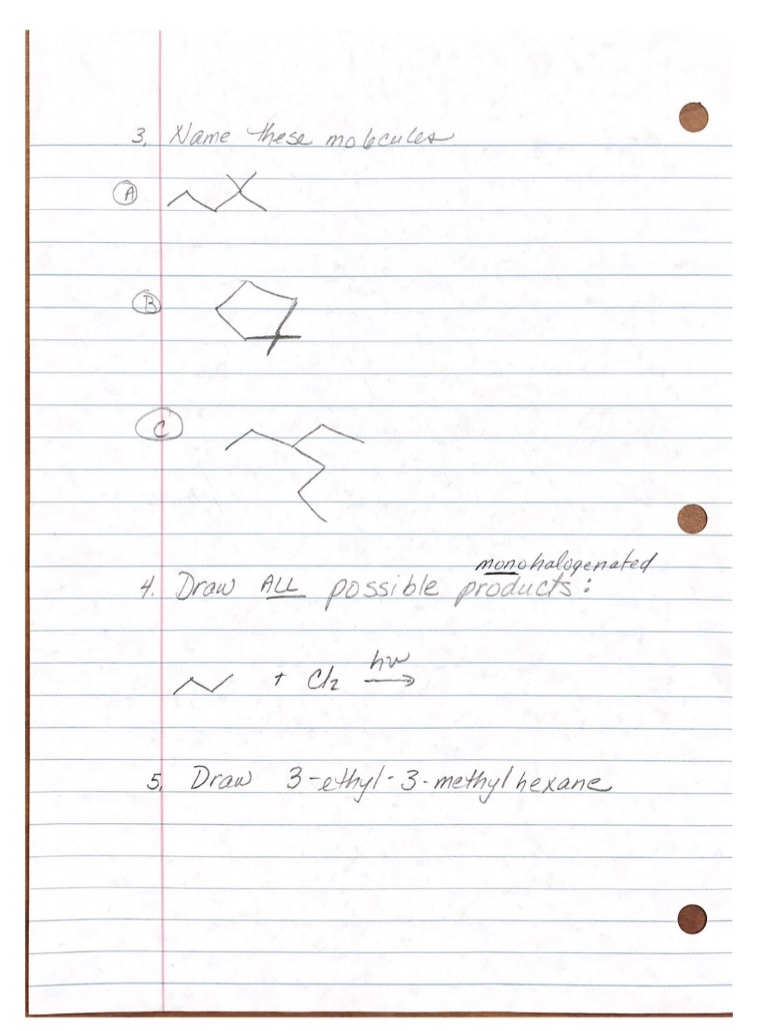 3. Name these molecules
A
B
C
monohalogenated
4. Draw ALL possible products:
+ Cl2 hν →
5. Draw 3-ethyl-3-methylhexane